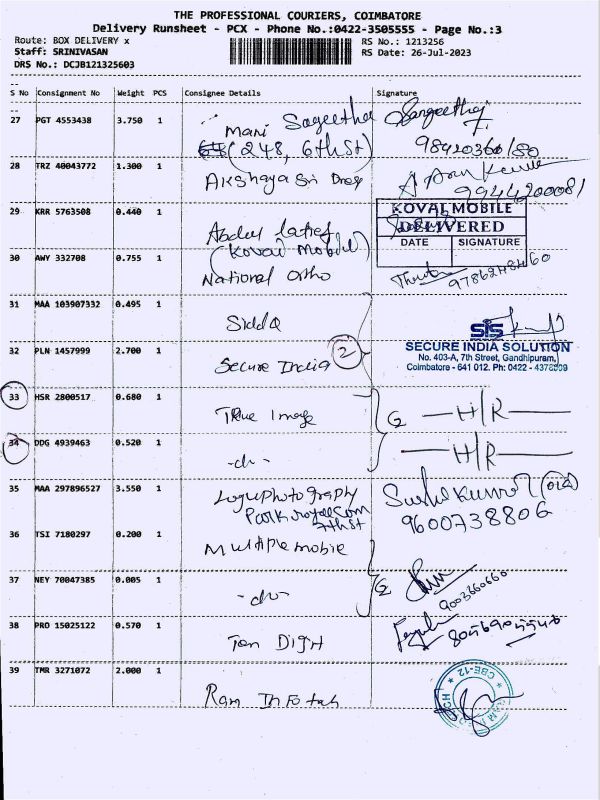 THE PROFESSIONAL COURIERS, COIMBATORE
Delivery Runsheet - PCX - Phone No.:0422-3505555 - Page No.:3
Route: BOX DELIVERY x
RS No.: 1213256
Staff: SRINIVASAN
RS Date: 26-Jul-2023
DRS No.: DCJB121325603
S No Consignment No Weight PCS Consignee Details Signature
27 PGT 4553438 3.750 1
Mani Sageetha
(248, 6th St)
Sangeetha
28 TRZ 40043772 1.300 1
Akshaya Sri Dres
9944200081
29 KRR 5763508 0.440 1
Abdul Latief
(Kovai Mobile)
KOVAI MOBILE
DELIVERED
DATE SIGNATURE
30 AWY 332708 0.755 1
National Ortho
31 MAA 103907332 0.495 1
Sidda
32 PLN 1457999 2.700 1
Secure India
2
SIS
SECURE INDIA SOLUTION
No. 403-A, 7th Street, Gandhipuram,
Coimbatore - 641 012. Ph: 0422 - 4376909
33 HSR 2800517 0.680 1
True Image
H/R
34 DDG 4939463 0.520 1
-do-
H/R
35 MAA 297896527 3.550 1
Logu photography
Park royal Com
7th St
9600738806
36 TSI 7180297 0.200 1
Multiple mobile
37 NEY 70047385 0.005 1
-do-
9003660660
38 PRO 15025122 0.570 1
Ten Digit
39 TMR 3271072 2.000 1
Ram Infotah
CBE-12